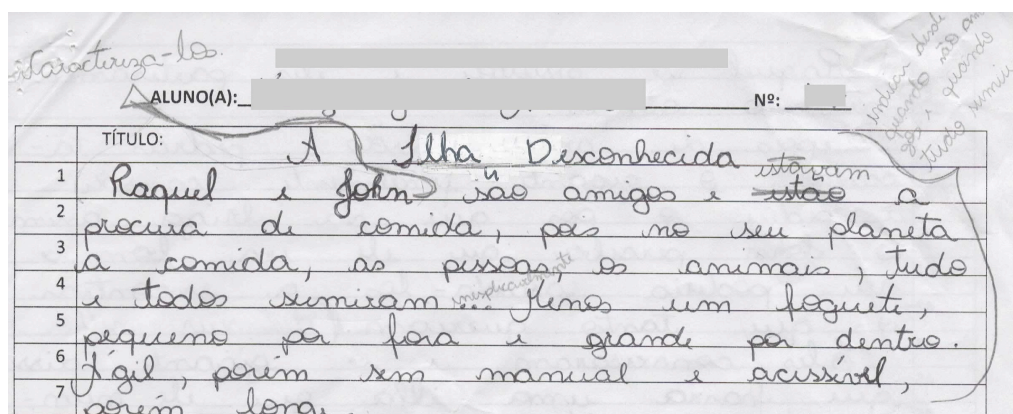 Caracteriza-los.
indicar desde
quando são ami
gos e quando
tudo sumiu
ALUNO(A):
Nº:
TÍTULO: A Ilha Desconhecida
estavam
1 Raquel e John são amigos e estão a
2 procura de comida, pois no seu planeta
3 a comida, as pessoas os animais, tudo
inexplicavelmente
4 e todos sumiram... Menos um foguete,
5 pequeno por fora e grande por dentro.
6 Ágil, porém sem manual e acessível,
7 porém longe